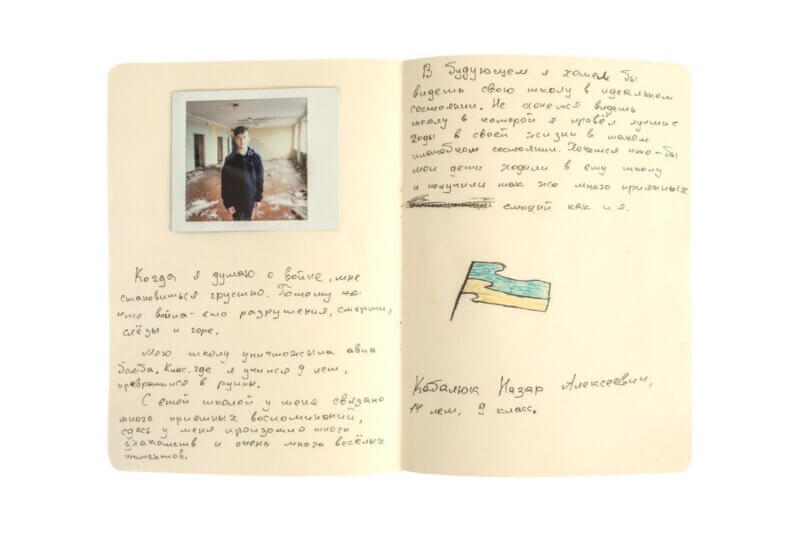 Когда я думаю о войне, мне
становиться грустно. Потому
что война-это разрушения, смерти,
слёзы и горе.
Мою школу уничтожыла авиа
бомба. Клас, где я учился 9 лет,
превратился в руины.
С етой школой у меня связано
много приятных воспоминаний,
здесь у меня произошло много
знакомств и очень много весёлых
моментов.
В будующем я хотел бы
видеть свою школу в идеальном
состоянии. Не хочется видеть
школу в которой я провёл лучшие
годы в своей жизни в таком
плачебном состоянии. Хочется что-бы
мои дети ходили в ету школу
и получили так же много приятных
емоций как и я.
Кобалюк Назар Алексеевич,
14 лет, 9 класс.